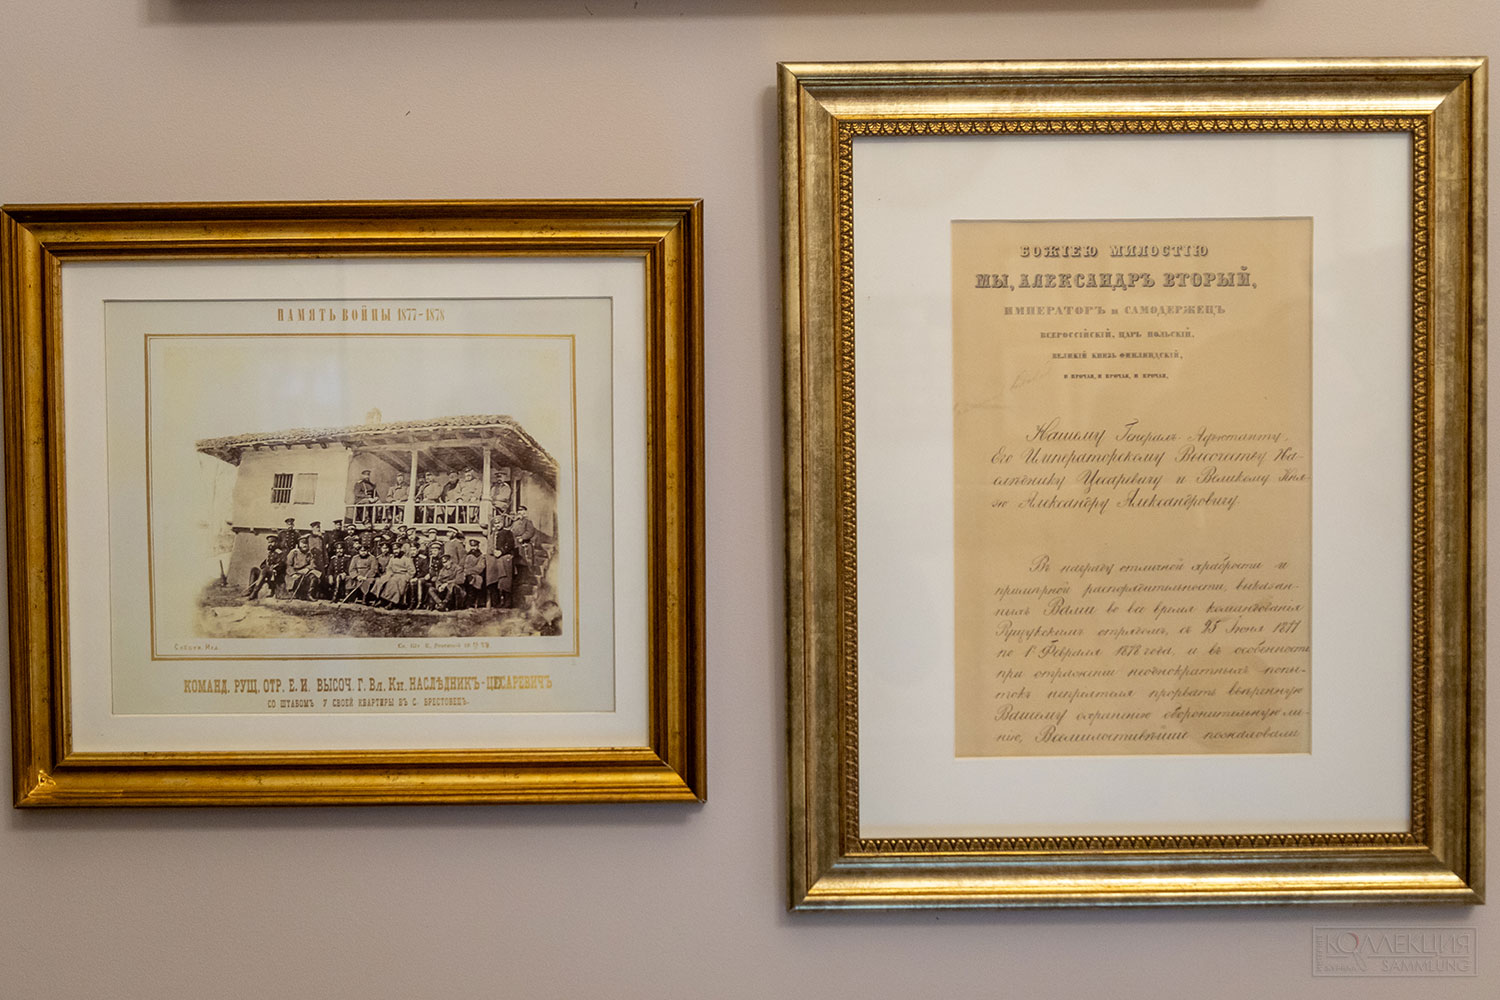 ПАМЯТЬ ВОЙНЫ 1877-1878
КОМАНД. РУЩ. ОТР. Е. И. ВЫСОЧ. Г. ВЛ. КН. НАСЛѢДНИКЪ-ЦЕСАРЕВИЧЪ
СО ШТАБОМЪ У СВОЕЙ КВАРТИРЫ ВЪ С. БРЕСТОВЕЦЪ.
БОЖІЕЮ МИЛОСТІЮ
МЫ, АЛЕКСАНДРЪ ВТОРЫЙ,
ИМПЕРАТОРЪ и САМОДЕРЖЕЦЪ
ВСЕРОССІЙСКІЙ, ЦАРЬ ПОЛЬСКІЙ,
ВЕЛИКІЙ КНЯЗЬ ФИНЛЯНДСКІЙ,
И ПРОЧАЯ, И ПРОЧАЯ, И ПРОЧАЯ,
Нашему Генералъ-Адъютанту,
Его Императорскому Высочеству На-
слѣднику Цесаревичу и Великому Кня-
зю Александру Александровичу.
Въ награду отличной храбрости и
примѣрной распорядительности, выказан-
ныхъ Вами во все время командованія
Рущукскимъ отрядомъ, съ 25 Іюня 1877
по 1е Февраля 1878 года, и въ особенности
при отраженіи неоднократныхъ попы-
токъ непріятеля прорвать ввѣренную
Вашему охраненію оборонительную ли-
нію, Всемилостивѣйше пожаловали
КОЛЛЕКЦИЯ
SAMMLUNG